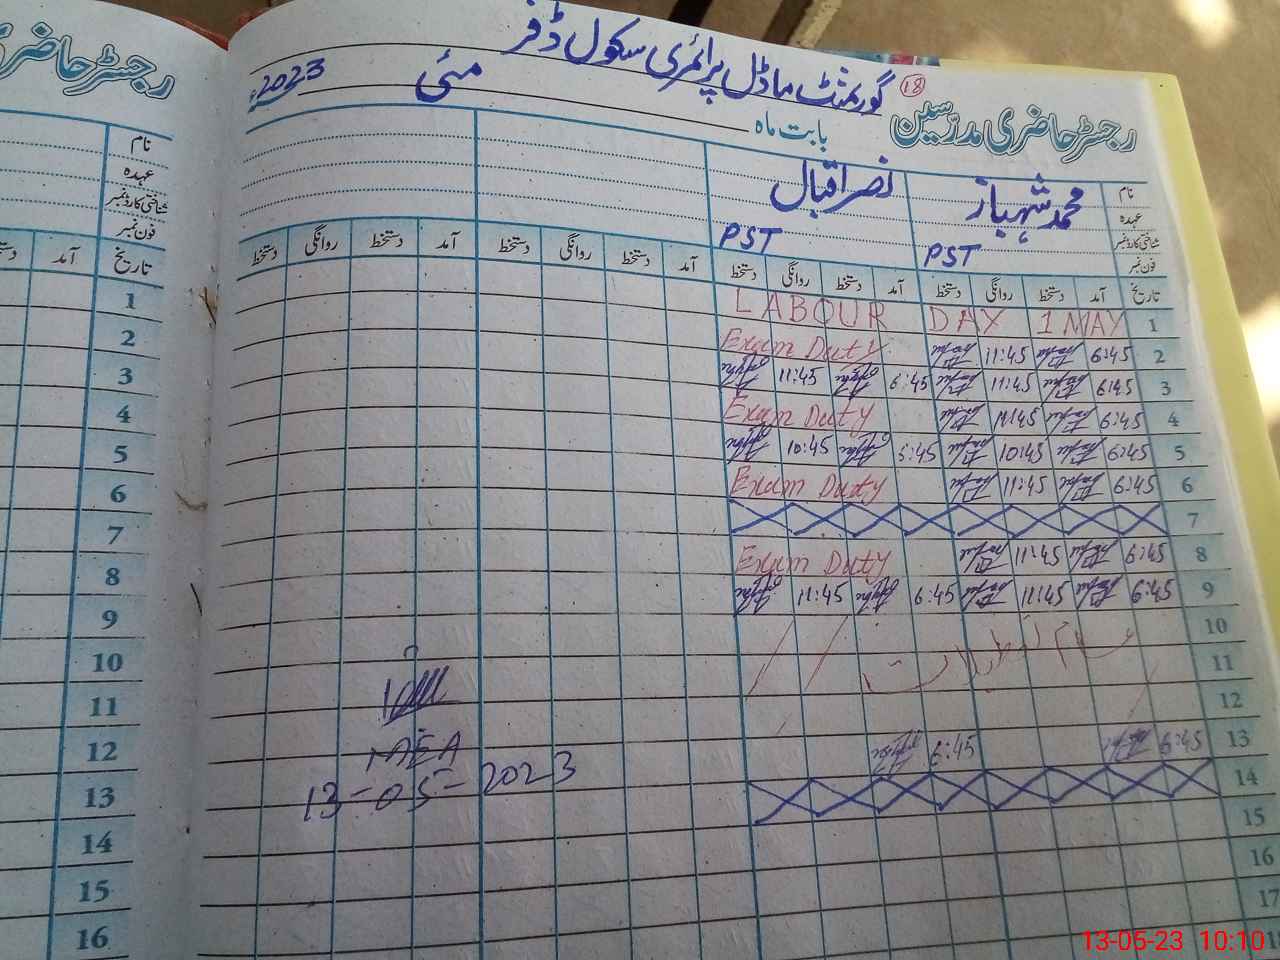 رجسٹر حاضری مدرسین (18) گورنمنٹ ماڈل پرائمری سکول ڈفر
بابت ماہ مئی 2023
نام محمد شہباز نصر اقبال
عہدہ
شناختی کارڈ نمبر PST PST
فون نمبر
تاریخ آمد دستخط روانگی دستخط آمد دستخط روانگی دستخط آمد دستخط روانگی دستخط آمد دستخط روانگی دستخط
LABOUR DAY 1 MAY 1
Exam Duty 11:45 6:45 2
11:45 6:45 11:45 6:45 3
Exam Duty 11:45 6:45 4
10:45 10:45 6:45 5
Exam Duty 11:45 6:45 6
7
Exam Duty 11:45 6:45 8
11:45 6:45 11:45 6:45 9
10
11
12
6:45 6:45 13
14
15
16
17
MEA
13-05-2023
رجسٹر حاضری
نام
عہدہ
شناختی کارڈ نمبر
فون نمبر
تاریخ آمد
1
2
3
4
5
6
7
8
9
10
11
12
13
14
15
16
13-05-23 10:10